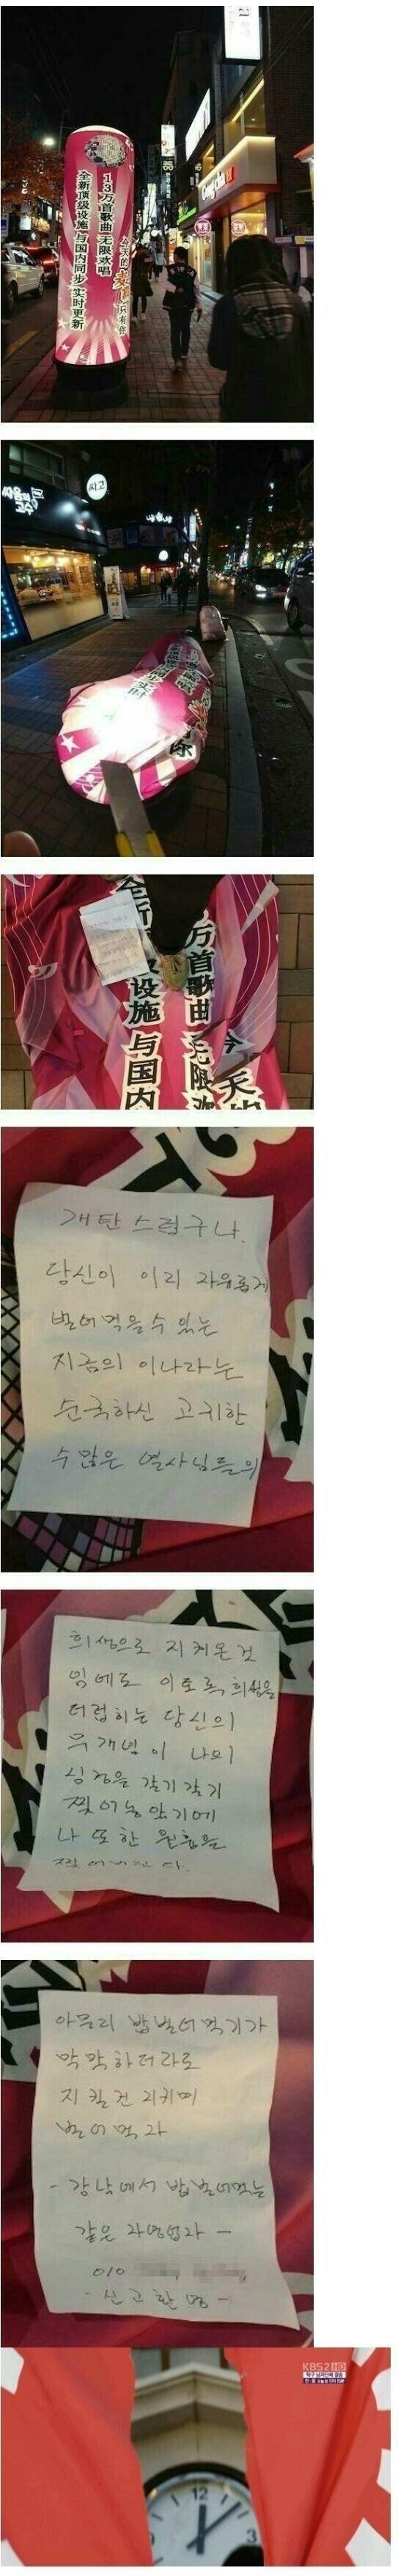 13万首歌曲 无限欢唱
全新顶级设施 与国内同步 实时更新
今天的
只有你
싸움의
고수
싸고
你
全新
设施 与国内
万首歌曲 无限欢
今天的
개탄스럽구나.
당신이 이리 자유롭게
벌어먹을수 있는
지금의 이나라는
순국하신 고귀한
수많은 열사님들의
희생으로 지켜온것
임에도 이토록 희생을
더럽히는 당신의
무개념이 나의
심정을 갈기갈기
찢어놓았기에
나 또한 원흉을
찢어버린다.
아무리 밥벌어먹기가
막막하더라도
지킬건 지키며
벌어먹자
- 강남에서 밥벌어먹는
같은 자영업자 -
010
- 신고환영 -
KBS2 HD
12